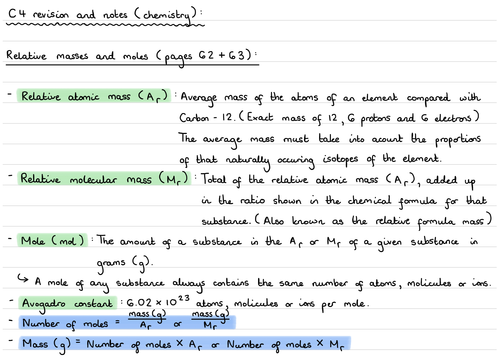 C4 revision and notes (chemistry):
Relative masses and moles (pages 62 + 63):
- Relative atomic mass (Ar): Average mass of the atoms of an element compared with
Carbon - 12. (Exact mass of 12, 6 protons and 6 electrons)
The average mass must take into acount the proportions
of that naturally occuring isotopes of the element.
- Relative molecular mass (Mr): Total of the relative atomic mass (Ar), added up
in the ratio shown in the chemical formula for that
substance. (Also known as the relative formula mass)
- Mole (mol): The amount of a substance in the Ar or Mr of a given substance in
grams (g).
↳ A mole of any substance always contains the same number of atoms, molecules or ions.
- Avogadro constant: 6.02 × 10²³ atoms, molecules or ions per mole.
- Number of moles = mass(g)/Ar or mass(g)/Mr
- Mass (g) = Number of moles × Ar or Number of moles × Mr